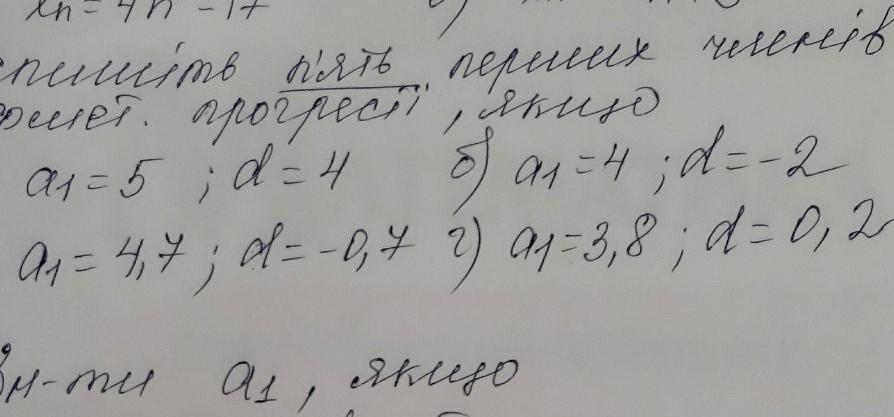 xn = 4n - 17
пишіть п'ять перших членів
омет. прогресії, якщо
a1 = 5 ; d = 4 б) a1 = 4 ; d = -2
a1 = 4,7 ; d = -0,7 г) a1 = 3,8 ; d = 0,2
Зн-ти a1, якщо